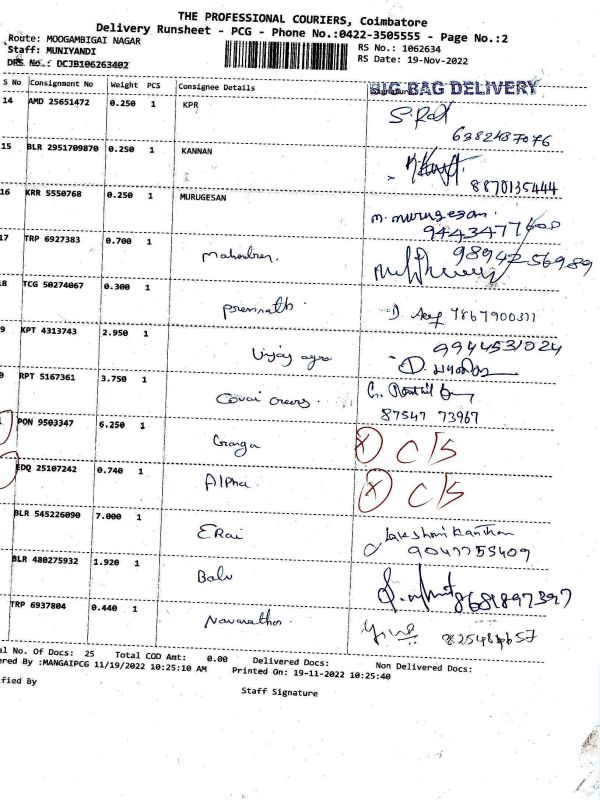 THE PROFESSIONAL COURIERS, Coimbatore
Delivery Runsheet - PCG - Phone No.:0422-3505555 - Page No.:2
Route: MOOGAMBIGAI NAGAR
Staff: MUNIYANDI
DRS No.: DCJB106263402
RS No.: 1062634
RS Date: 19-Nov-2022
S No Consignment No Weight PCS Consignee Details Signature
BIG BAG DELIVERY
14 AMD 25651472 0.250 1 KPR
6382487076
15 BLR 2951709870 0.250 1 KANNAN
8870135444
16 KRR 5550768 0.250 1 MURUGESAN m. murugesan.
9443477600
17 TRP 6927383 0.700 1
98942 56989
8 TCG 50274067 0.300 1 premnath. 7867900311
9 KPT 4313743 2.950 1 Vijay agro 9944531024
RPT 5167361 3.750 1 Covai
87547 73967
PON 9503347 6.250 1 Ganga X C/S
EDQ 25107242 0.740 1 Alpha. X C/S
BLR 545226090 7.000 1 ERai Lakshmi Kanthan
9047755409
BLR 480275932 1.920 1 Balu 8681897397
TRP 6937804 0.440 1
al No. Of Docs: 25 Total COD Amt: 0.00 Delivered Docs: Non Delivered Docs:
ered By :MANGAIPCG 11/19/2022 10:25:10 AM Printed On: 19-11-2022 10:25:40
ified By Staff Signature